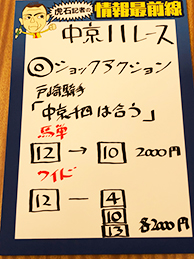 虎石記者の
情報最前線
中京11レース
◎ショックアクション
戸崎騎手
「中京千四は合う」
馬単
12 → 10 2000円
ワイド
12 — 4
10
13 各2000円